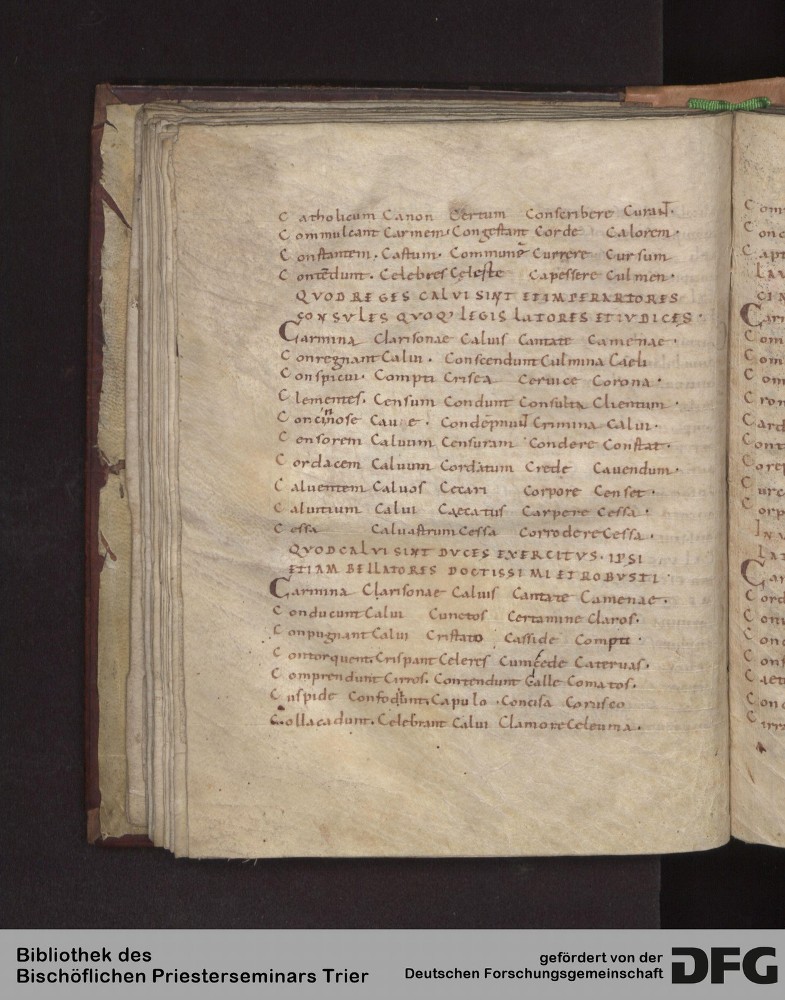 Catholicum Canon Certum Conscribere Curant.
Commulcant Carmen. Congestant Corde Calorem.
Constantem. Castum. Commune Currere Cursum
Contēdunt. Celebres Celeste Capessere Culmen.
QVOD REGES CALVI SINT ET IMPERARTORES
CONSVLES QVOQ LEGIS LATORES ET IVDICES.
Carmina Clarisonae Calvis Cantate Camenae.
Conregnant Calvi. Conscendunt Culmina Caeli
Conspicui. Compti Crisea Cervice Corona.
Clementes. Censum Condunt Consulta Clientum.
Concinnose Cave. Condēpnavit Crimina Calvi.
Censorem Calvum Censuram Condere Constat.
Cordacem Calvum Cordatum Crede Cavendum.
Calventem Calvos Cecari Corpore Censet.
Calvitium Calvi Caecatus Carpere Cessa.
Cessa Calvastrum Cessa Corrodere Cessa.
QVOD CALVI SINT DVCES EXERCITVS. IPSI
ETIAM BELLATORES DOCTISSIMI ET ROBVSTI.
Carmina Clarisonae Calvis Cantate Camenae.
Conducunt Calvi Cunctos Certamine Claros.
Conpugnant Calvi Cristato Casside Compti.
Contorquent. Crispant Celeres Cumcede Catervas.
Comprendunt Cirros. Contendunt Galle Comatos.
Cuspide Confodiunt. Capulo. Concisa Corusco
Collacadunt. Celebrant Calvi Clamore Celeuma.
Bibliothek des
Bischöflichen Priesterseminars Trier
gefördert von der
Deutschen Forschungsgemeinschaft
DFG